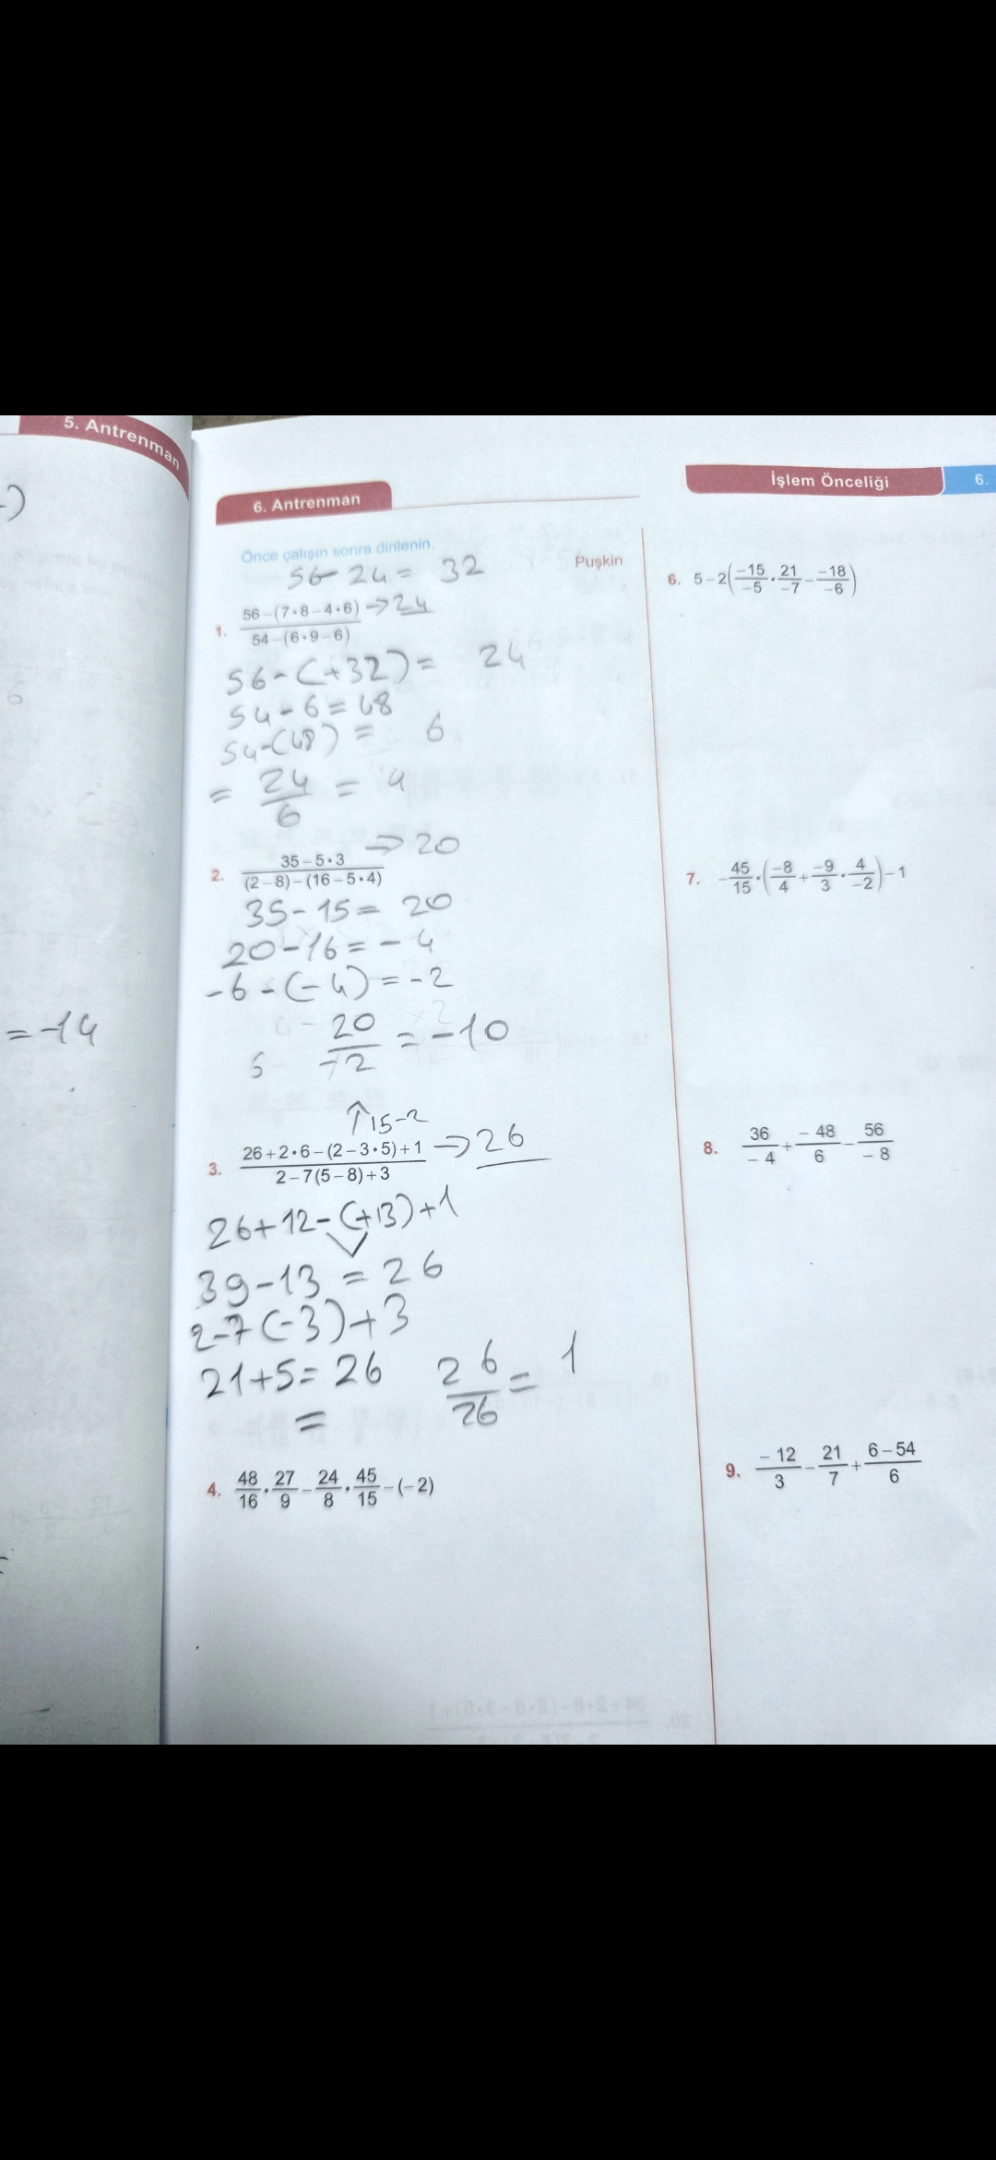 5. Antrenman
= -14
6. Antrenman
Önce çalışın sonra dinlenin.
Puşkin
56 - 24 = 32
1. \frac{56-(7•8-4•6)}{54-(6•9-6)} → 24
56 - (+32) = 24
54 - 6 = 48
54 - (48) = 6
= \frac{24}{6} = 4
2. \frac{35-5•3}{(2-8)-(16-5•4)} → 20
35 - 15 = 20
20 - 16 = - 4
-6 - (-4) = -2
\frac{20}{-2} = -10
↑ 15-2
3. \frac{26+2•6-(2-3•5)+1}{2-7(5-8)+3} → 26
26 + 12 - (+13) + 1
39 - 13 = 26
2 - 7 (-3) + 3
21 + 5 = 26
=
\frac{26}{26} = 1
4. \frac{48}{16}•\frac{27}{9}-\frac{24}{8}•\frac{45}{15}-(-2)
İşlem Önceliği
6.
6. 5-2(\frac{-15}{-5}•\frac{21}{-7}-\frac{-18}{-6})
7. -\frac{45}{15}•(\frac{-8}{4}+\frac{-9}{3}•\frac{4}{-2})-1
8. \frac{36}{-4}+\frac{-48}{6}-\frac{56}{-8}
9. \frac{-12}{3}-\frac{21}{7}+\frac{6-54}{6}